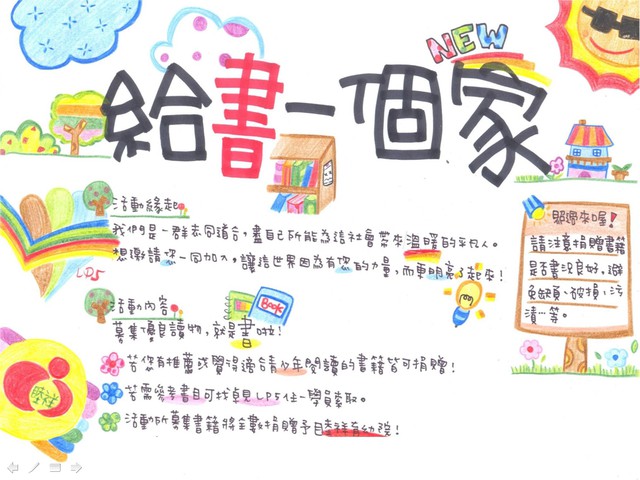 NEW
給書一個家
活動緣起
我們是一群志同道合,盡自己所能為這社會帶來溫暖的平凡人。
想邀請您一同加入,讓這世界因為有您的力量,而更明亮了起來!
LP5
Book
活動內容
募集優良讀物,就是書啦!
若您有推薦或覺得適合青少年閱讀的書籍皆可捐贈!
若需參考書目可找 LP5任一學員索取。
活動所募集書籍將全數捐贈予 育幼院!
過來喔!
請注意捐贈書籍
是否書況良好,避
免缺頁、破損、污
漬…等。